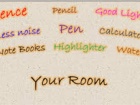 ence Pencil Good Lu
less noise Pen Calculate
Note Books Highlighter Water
Your Room